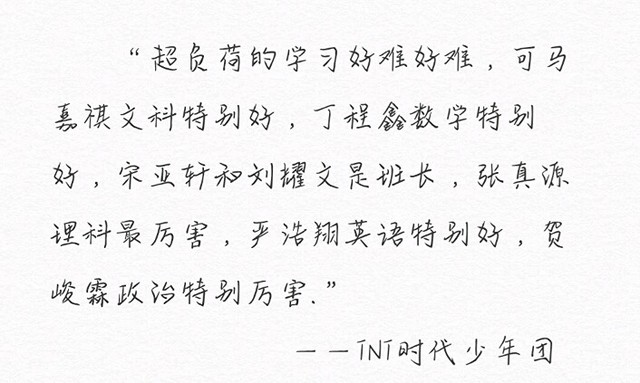 “超负荷的学习好难好难，可马
嘉祺文科特别好，丁程鑫数学特别
好，宋亚轩和刘耀文是班长，张真源
理科最厉害，严浩翔英语特别好，贺
峻霖政治特别厉害.”
——TNT时代少年团